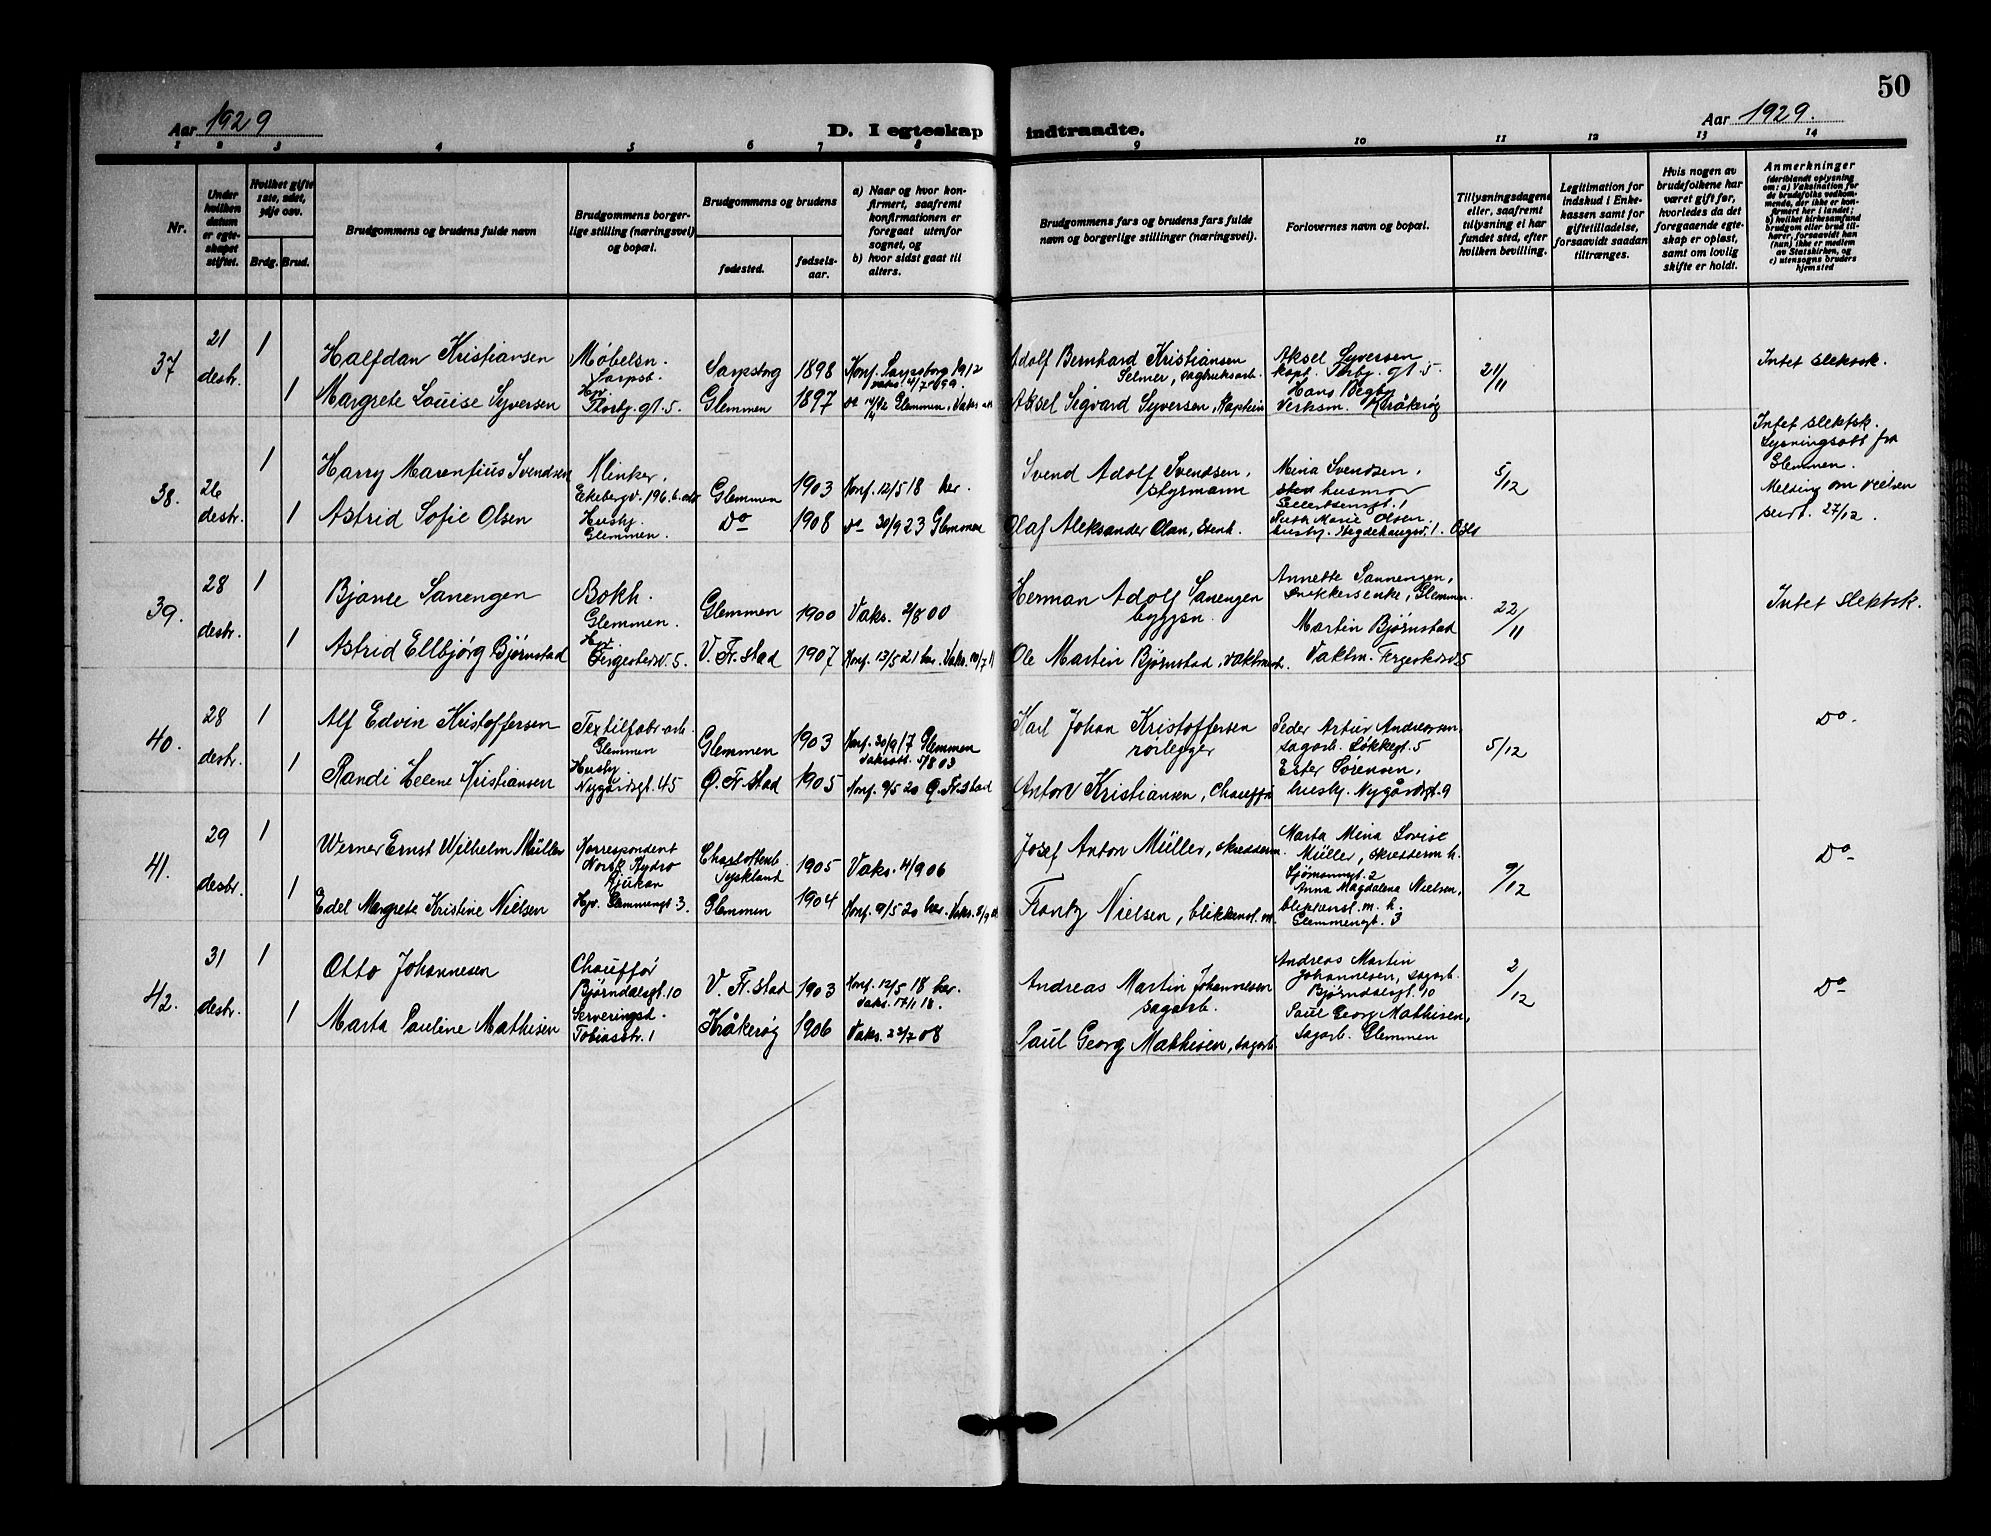 50
Aar 1929
D. I egteskap indtraadte.
Aar 1929.
1 2 3 4 5 6 7 8 9 10 11 12 13 14
Nr.
Under hvilken datum er egteskapet stiftet.
Hvilket gifte 1ste, 2det, 3dje osv.
Brdg. Brud.
Brudgommens og brudens fulde navn
Brudgommens borgerlige stilling (næringsvei) og bopæl.
Brudgommens og brudens
fødested.
fødselsaar.
a) Naar og hvor konfirmert, saafremt konfirmationen er foregaat utenfor sognet, og
b) hvor sidst gaat til alters.
Brudgommens fars og brudens fars fulde navn og borgerlige stillinger (næringsvei).
Forlovernes navn og bopæl.
Tillysningsdagene eller, saafremt tillysning ei har fundet sted, efter hvilken bevilling.
Legitimation for indskud i Enkekassen samt for giftetilladelse, forsaavidt saadan tiltrænges.
Hvis nogen av brudefolkene har været gift før, hvorledes da det foregaaende egteskap er opløst, samt om lovlig skifte er holdt.
Anmerkninger
(deriblandt oplysning om: a) Vaksination for de brudefolks vedkommende, der ikke er konfirmert her i landet; b) hvilket kirkesamfund brudgom eller brud tilhører, forsaavidt han (hun) ikke er medlem av Statskirken, og c) utensogns bruders hjemsted
37
21 desbr.
1
1
Halfdan Kristiansen
Margrete Louise Syversen
Møbelsn.
Sarpsb.
Hv.
Torbj. gt. 5.
Sarpsborg 1898
Glemmen 1897
Konf. Sarpsborg 1912
Adolf Bernhard Kristiansen
Selmer, sagbruksarb.
Aksel Sigvard Syversen, Kaptein
Aksel Syversen
kapt. Torbj. gt. 5
Hans Begby
Verksm. Kråkerøy
21/11
Intet slektsk.
38.
26 desbr.
1
1
Harry Marentius Svendsen
Astrid Sofie Olsen
Klinker.
Husbj.
Glemmen.
Glemmen 1903
Do 1908
Konf. 12/5 18 her.
Do 30/9 23 Glemmen
Svend Adolf Svendsen,
styrmann
Olaf Aleksander Olsen, Stenh.
Mina Svendsen,
husmor
Ruth Marie Olsen
husbj. Hegdehaugsv. 1. Oslo
5/12
Intet slektsk.
Lysningsatt fra
Glemmen.
Melding om vielsen
sendt. 27/12.
39.
28 desbr.
1
1
Bjarne Sanengen
Astrid Ellbjørg Bjørnstad
Bokh.
Glemmen.
Hv.
Fergestedsv. 5.
Glemmen 1900
V. Fr. stad 1907
Vaks. 2/8 00
Konf. 13/5 21 her. Vaks. 10/7 11
Herman Adolf Sanengen
byggsn.
Ole Martin Bjørnstad, vaktmest.
Annette Sannengen,
snekkerenke, Glemmen.
Martin Bjørnstad
Vaktm. Fergestedsv. 5
22/11
Intet slektsk.
40.
28 desbr.
1
1
Alf Edvin Kristoffersen
Randi Helene Kristiansen
Textilfabr. arb.
Glemmen
Husbj.
Nygårdsgt. 45
Glemmen 1903
Ø. Fr. stad 1905
Konf. 30/9 17 Glemmen
Vaksatt. 5/8 03
Konf. 9/5 20 Ø. Fr. stad
Karl Johan Kristoffersen
rørlegger
Anton Kristiansen, Chauffør
Peder Artur Andreassen,
sagarb. Løkkegt. 5
Ester Sørensen,
husbj. Nygårdsgt. 9
5/12
Do.
41.
29 desbr.
1
1
Werner Ernst Wilhelm Müller
Edel Margrete Kristine Nielsen
Korrespondent
Norsk Hydro
Rjukan
Hjv. Glemmengt 3.
Charlottenb.
Tyskland 1905
Glemmen 1904
Vaks. 4/9 06
Konf. 9/5 20 her.
Josef Anton Müller, skredderm.
Frantz Nielsen, blikkensl. m.
Marta Mina Lovise
Müller, skredderm h.
Sjømannsgt. 2
Anna Magdalena Nielsen,
blikkensl. m. h.
Glemmengt. 3
9/12
Do
42.
31 desbr.
1
1
Otto Johannesen
Marta Pauline Mathisen
Chauffør
Bjørndalsgt. 10
Serveringsd.
Tobiasstr. 1
V. Fr. stad 1903
Kråkerøy 1906
Konf. 12/5 18 her.
Vaks. 17/1 18.
Vaks. 23/7 08
Andreas Martin Johannesen
sagarb.
Paul Georg Mathisen, sagarb.
Andreas Martin
Johannesen, sagarb.
Bjørndalsgt. 10
Paul Georg Mathisen,
sagarb. Glemmen
2/12
Do